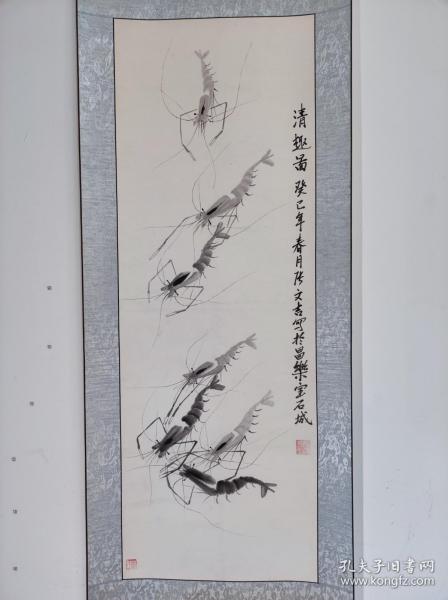 清趣图 癸巳年春月张文吉写于昌樂宝石城
孔夫子旧书网
www.kongfz.com